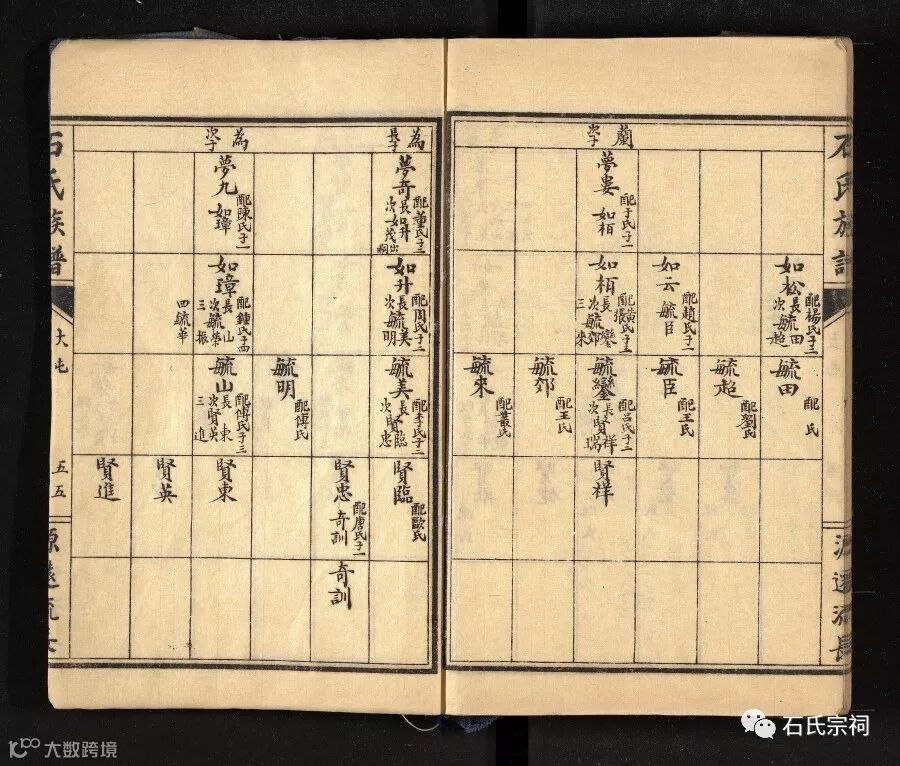 石氏族譜
源遠流長
蘭
次子
夢婁
配于氏子一
如栢
如松
配楊氏子二
長毓田
次毓超
如云
配趙氏子一
毓臣
如栢
配黃氏
張氏子三
長毓鑾
次毓郊
三毓來
毓田
配 氏
毓超
配劉氏
毓臣
配王氏
毓鑾
配呂氏子二
長賢祥
次賢瑞
毓郊
配王氏
毓來
配叢氏
賢祥
為
長子
夢奇
配董氏子二
長如升
次如茂出嗣
為
次子
夢九
配陳氏子一
如璋
如升
配周氏子二
長毓美
次毓明
如璋
配鍾氏子四
長毓山
次毓榮
三毓振
四毓華
毓美
配李氏子二
長賢臨
次賢忠
毓明
配傅氏
毓山
配傅氏子三
長賢東
次賢英
三賢進
賢臨
配歐氏
賢忠
配唐氏子一
奇訓
賢東
賢英
賢進
奇訓
石氏族譜
大屯
五五
源遠流長
石氏宗祠
大数跨境